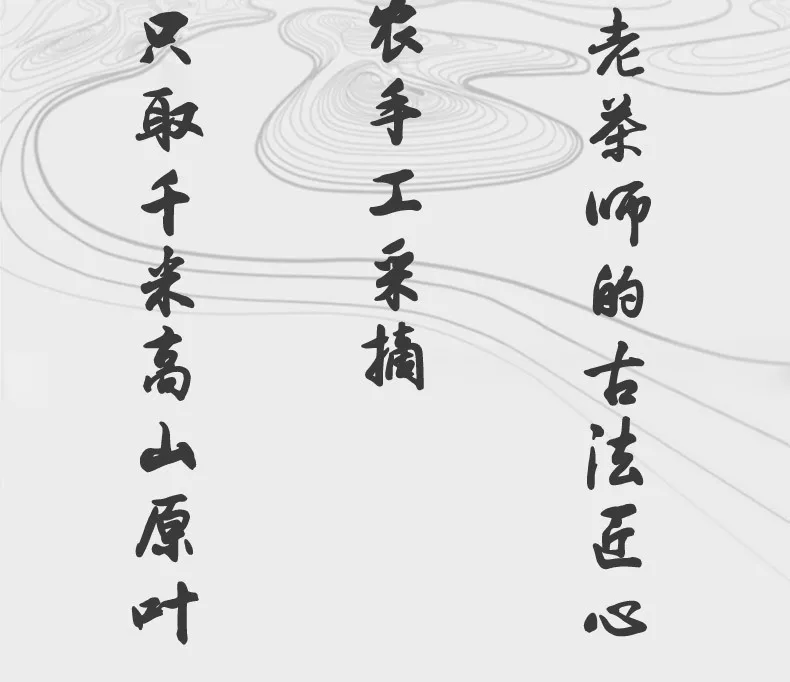 老茶师的古法匠心
农手工采摘
只取千米高山原叶